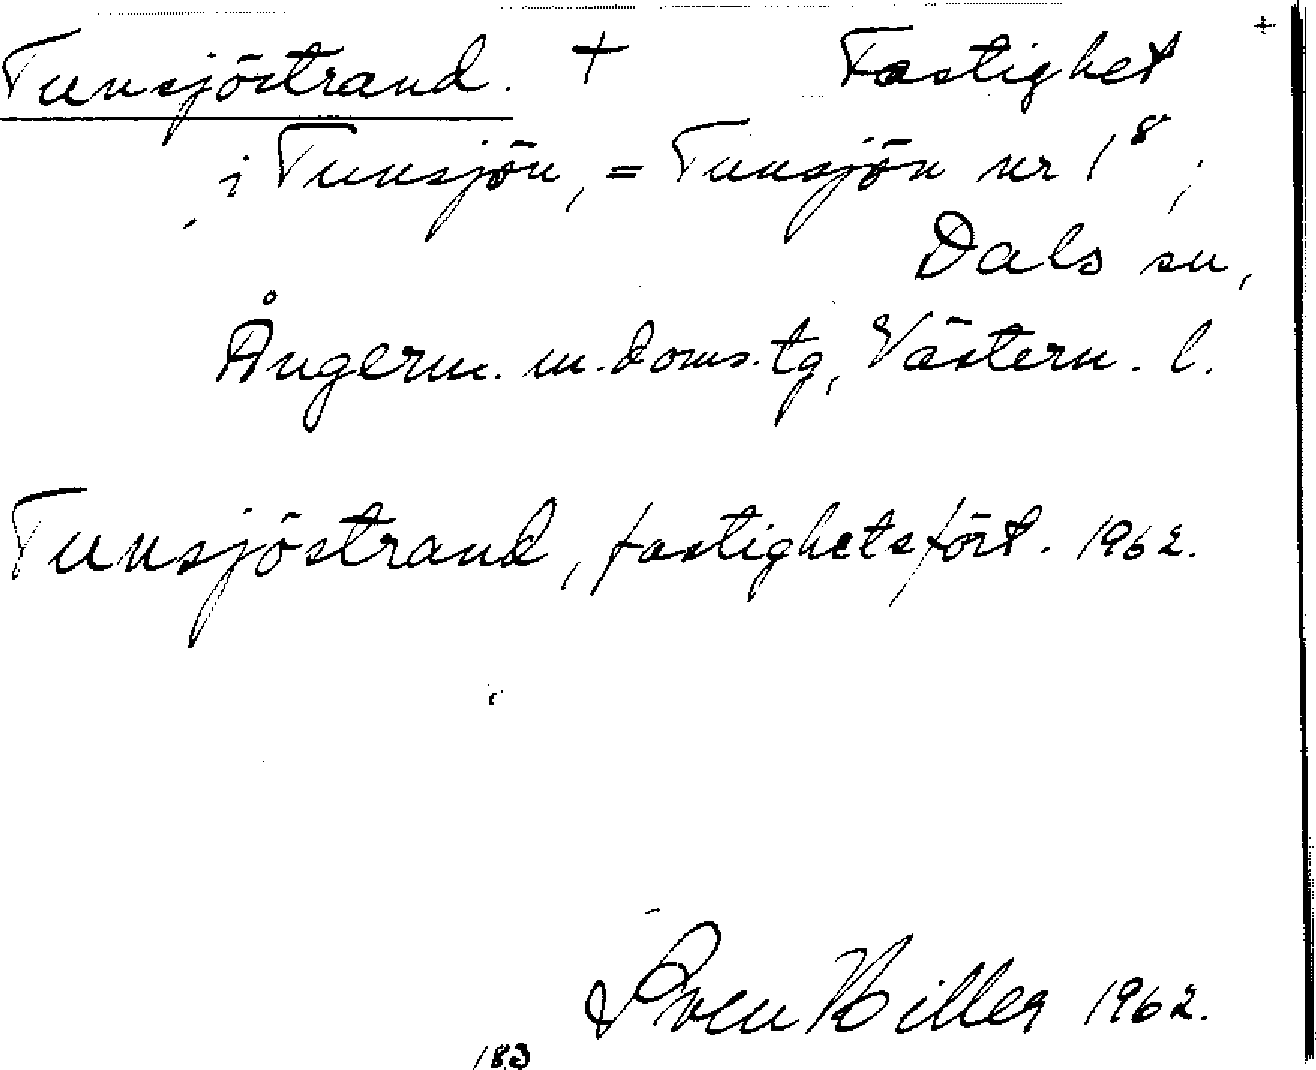 Tunsjöstrand. + Fastighet +
i Tunsjön, = Tunsjön nr 1⁸,
Dals sn,
Ångerm. m. doms. tg, Västern. l.
Tunsjöstrand, fastighetsfört. 1962.
Sven Hiller 1962.
183